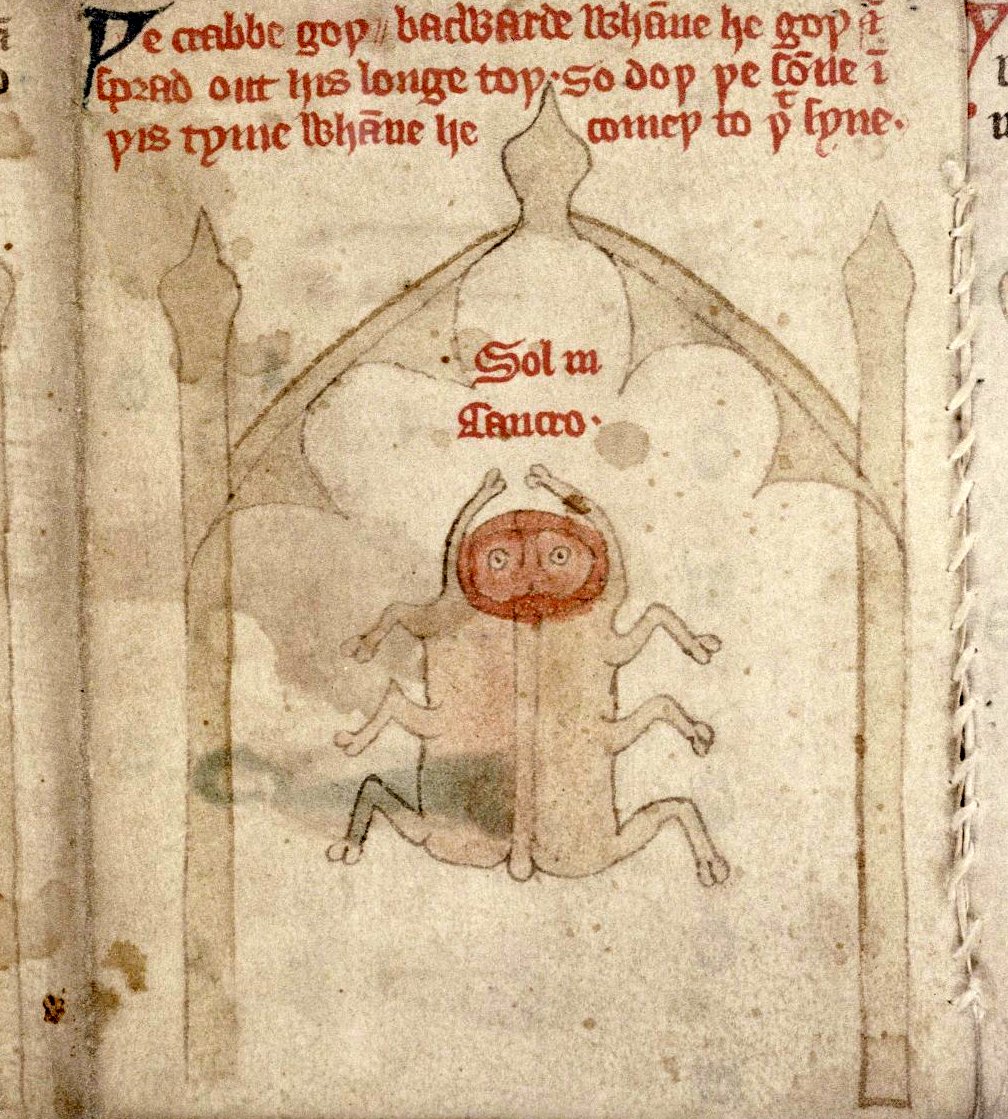 Þe crabbe goþ bacwarde whāne he goþ
sprad out his longe toþ· So doþ þe sōne ī
þis tyme whāne he comeþ to þᵗ syne·
Sol in
Cancro·